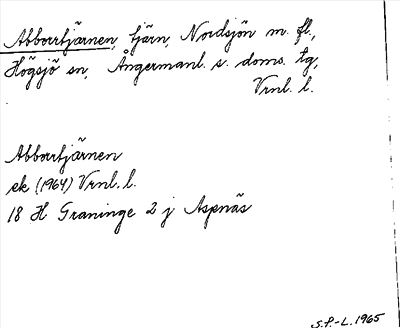 Abborrtjärnen, tjärn, Nordsjön m. fl.,
Högsjö sn, Ångermanl. s. doms. tg,
Vrnl. l.
Abborrtjärnen
ek (1964) Vrnl. l.
18 H Graninge 2 j Aspnäs
S.P.-L. 1965